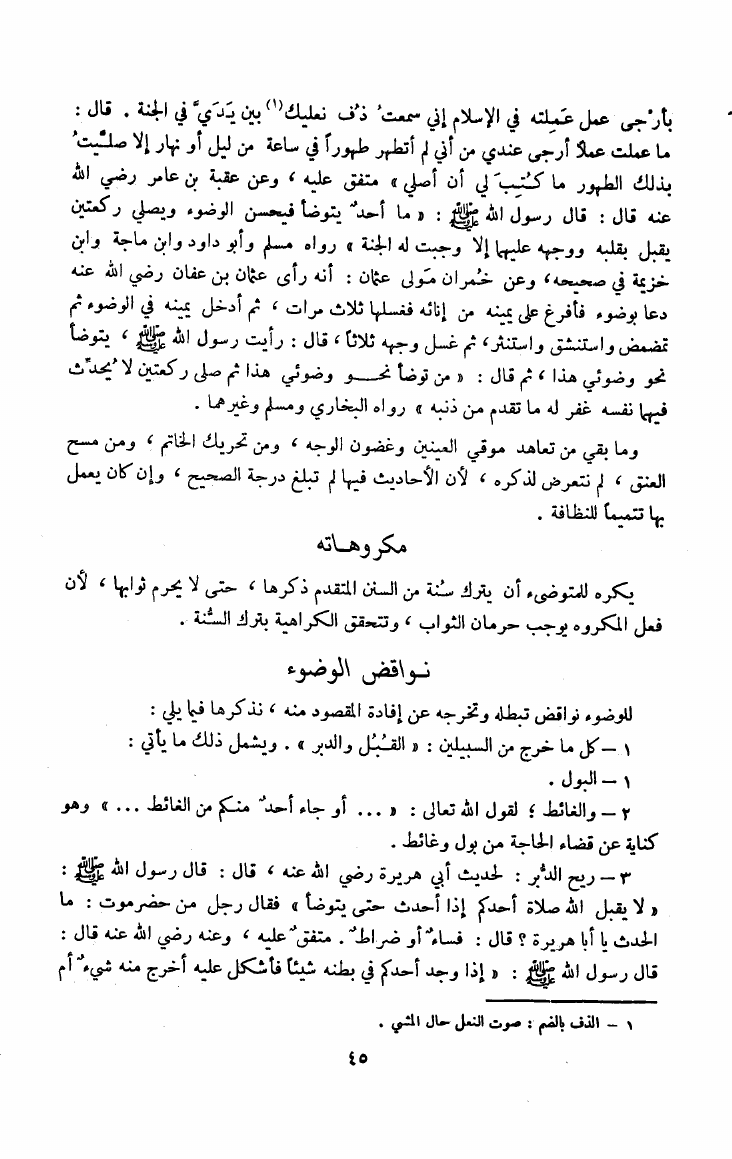 بأرْجى عمل عَمِلته في الإسلام إني سمعتُ دُف نعليك(١) بين يَدَيَّ في الجنة . قال :
ما عملت عملاً أرجى عندي من أني لم أتطهر طهوراً في ساعة من ليل أو نهار إلا صلَّيتُ
بذلك الطهور ما كُتِبَ لي أن أصلي » متفق عليه ، وعن عقبة بن عامر رضي الله
عنه قال : قال رسول الله ﷺ : « ما أحدٌ يتوضأ فيحسن الوضوء ويصلي ركعتين
يقبل بقلبه ووجهه عليهما إلا وجبت له الجنة » رواه مسلم وأبو داود وابن ماجة وابن
خزيمة في صحيحه، وعن حُمران مَولى عثمان : أنه رأى عثمان بن عفان رضي الله عنه
دعا بوضوء فأفرغ على يمينه من إنائه فغسلها ثلاث مرات ، ثم أدخل يمينه في الوضوء ثم
تمضمض واستنشق واستنثر، ثم غسل وجهه ثلاثاً ، قال : رأيت رسول الله ﷺ ، يتوضأ
نحو وضوئي هذا ، ثم قال : « من توضأ نحو وضوئي هذا ثم صلى ركعتين لا يُحدِّث
فيهما نفسه غفر له ما تقدم من ذنبه » رواه البخاري ومسلم وغيرهما .
وما بقي من تعاهد موقي العينين وغضون الوجه ، ومن تحريك الخاتم ، ومن مسح
العنق ، لم نتعرض لذكره ، لأن الأحاديث فيها لم تبلغ درجة الصحيح ، وإن كان يعمل
بها تتميماً للنظافة .
مكروهاته
يكره للمتوضىء أن يترك سُنة من السنن المتقدم ذكرها ، حتى لا يحرم ثوابها ، لأن
فعل المكروه يوجب حرمان الثواب ، وتتحقق الكراهية بترك السُّنة .
نواقض الوضوء
للوضوء نواقض تبطله وتخرجه عن إفادة المقصود منه ، نذكرها فيما يلي :
١ – كل ما خرج من السبيلين : « القُبُل والدبر » . ويشمل ذلك ما يأتي :
١ – البول .
٢ – والغائط ؛ لقول الله تعالى : « ... أو جاء أحدٌ منكم من الغائط ... » وهو
كناية عن قضاء الحاجة من بول وغائط .
٣ – ريح الدُّبر : لحديث أبي هريرة رضي الله عنه ، قال : قال رسول الله ﷺ :
« لا يقبل الله صلاة أحدكم إذا أحدث حتى يتوضأ » فقال رجل من حضرموت : ما
الحدث يا أبا هريرة ؟ قال : فساءٌ أو ضراطٌ . متفقٌ عليه ، وعنه رضي الله عنه قال :
قال رسول الله ﷺ : « إذا وجد أحدكم في بطنه شيئاً فأشكل عليه أخرج منه شيءٌ أم
١ – الذف بالضم : صوت النعل حال المشي .
٤٥